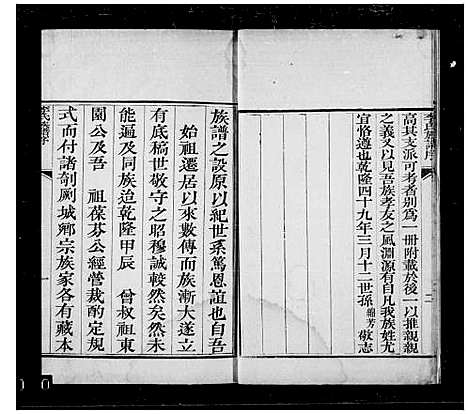 李氏族譜序
高其支派可考者别爲一冊附載於後一以推親親
之義又以見吾族孝友之風淵源有自凡我族姓尤
宜恪遵也乾隆四十九年三月十二世孫 錦芳 敬志
二
族譜之設原以紀世系篤恩誼也自吾
始祖遷居以來數傳而族漸大遂立
有底稿世敬守之昭穆誠較然矣然未
能遍及同族迨乾隆甲辰 曾叔祖東
園公及吾 祖葆芬公經營裁酌定規
式而付諸剞劂城鄉宗族家各有藏本
李氏族譜序
一